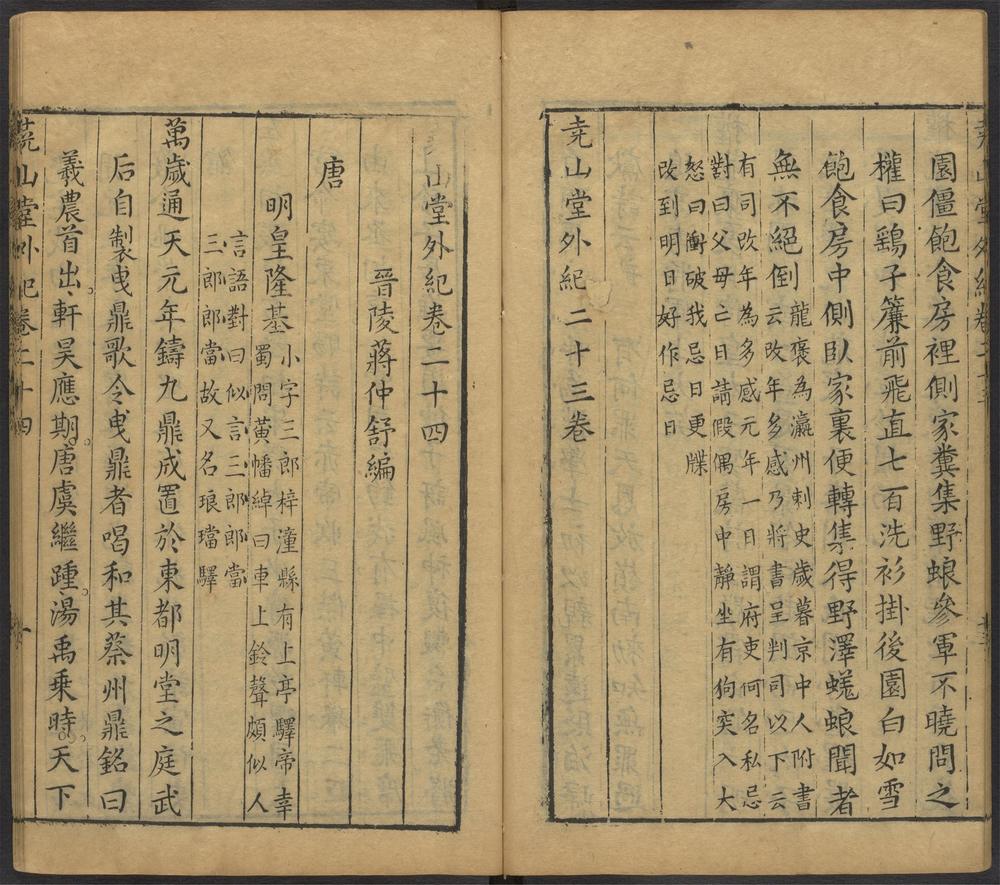 園僵飽食房裡側家糞集野蜋參軍不曉問之
權曰鷂子簷前飛直七百洗衫掛後園白如雪
飽食房中側臥家裏便轉集得野澤蜣蜋聞者
無不絕倒龍褒為瀛州刺史歲暮京中人附書
云改年多感乃將書呈判司以下云
有司改年為多感元年一日謂府吏何名私忌
對曰父母亡日請假偶房中靜坐有狗突入大
怒曰衝破我忌日更牒
改到明日好作忌日
堯山堂外紀二十三卷
山堂外紀卷二十四
晉陵蔣仲舒編
唐
明皇隆基小字三郎梓潼縣有上亭驛帝幸
蜀問黃幡綽曰車上鈴聲頗似人
言語對曰似言三郎郎當
三郎郎當故又名琅璫驛
萬歲通天元年鑄九鼎成置於東都明堂之庭武
后自製曳鼎歌令曳鼎者唱和其蔡州鼎銘曰
羲農首出。軒昊應期。唐虞繼踵。湯禹乘時。天下
堯山堂外紀卷二十四